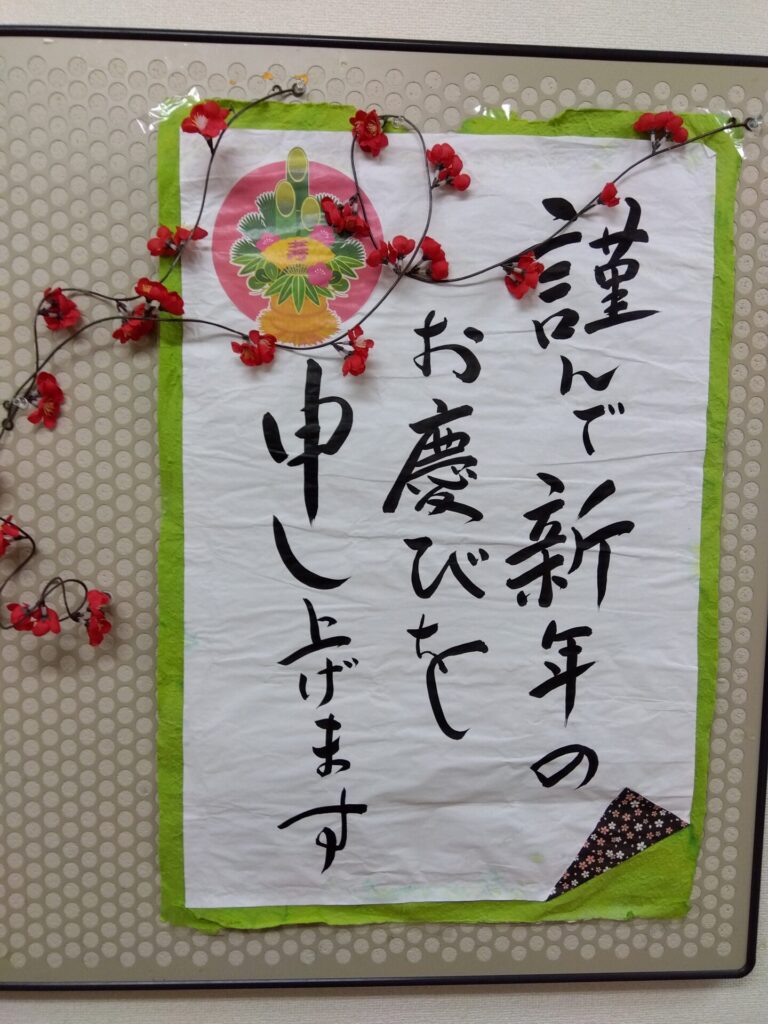 謹んで新年の
お慶びを
申し上げます
寿